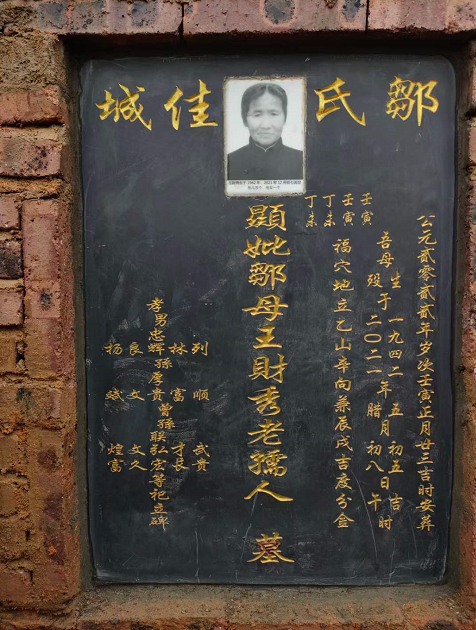 鄒氏佳城
公元贰零贰贰年岁次壬寅正月廿三吉时安葬
吾母
生
一九四二 五 初五吉
于 年 月 日 时
殁 二〇二一 腊 初八 午
壬寅
壬寅
丁未
丁未
福穴地立乙山辛向兼辰戌吉度分金
顯妣鄒母王財秀老孺人 墓
列 顺 武贵
林 富 才良
孝男忠辉孫厚贵曾孫联弘宏等祀立碑
良 文 文久
杨 斌 煌富